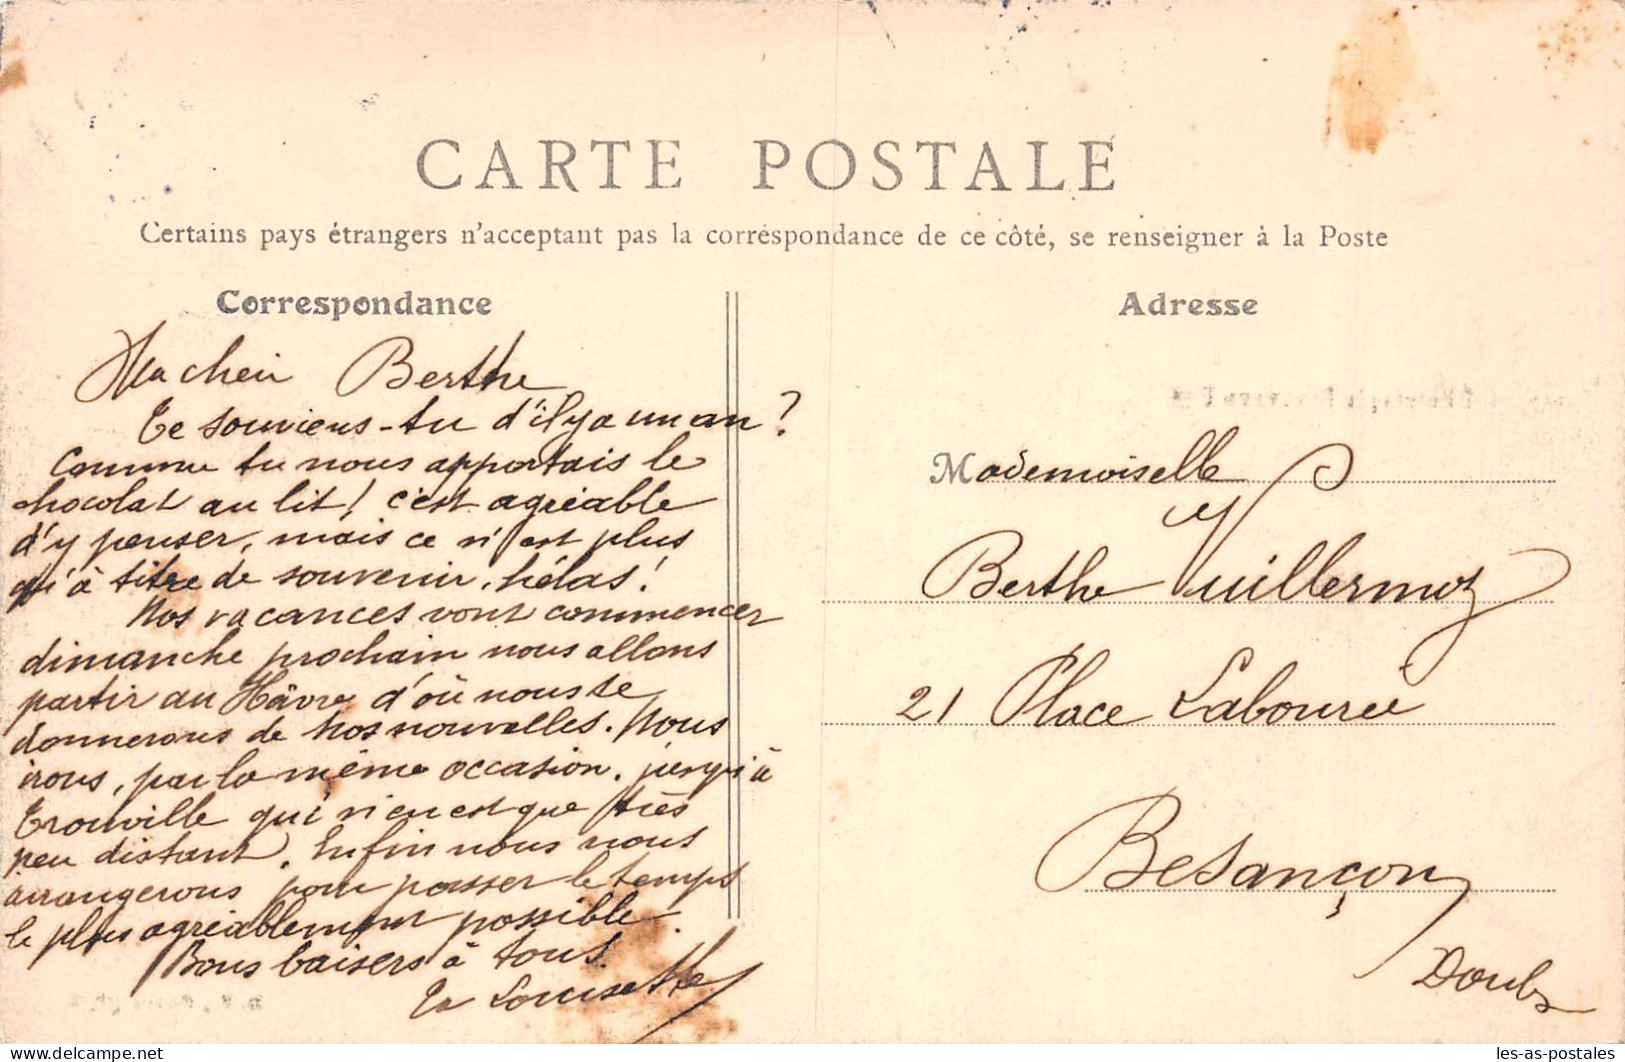 CARTE POSTALE
Certains pays étrangers n'acceptent pas la correspondance de ce côté, se renseigner à la Poste
Correspondance
Ma chère Berthe
Te souviens-tu d'il y a un an ?
Comme tu nous apportais le
chocolat au lit ! c'est agréable
d'y penser, mais ce n'est plus
qu'à titre de souvenir, hélas !
Nos vacances vont commencer
dimanche prochain nous allons
partir au Hâvre d'où nous te
donnerons de nos nouvelles. Nous
irons, par la même occasion, jusqu'à
Trouville qui n'en est que très
peu distant. Enfin nous nous
arrangerons pour passer le temps
le plus agréablement possible.
Bons baisers à tous.
Ta Louisette
Adresse
Mademoiselle
Berthe Vuillermoz
21 Place Labourée
Besançon
Doubs
les-as-postales
delcampe.net